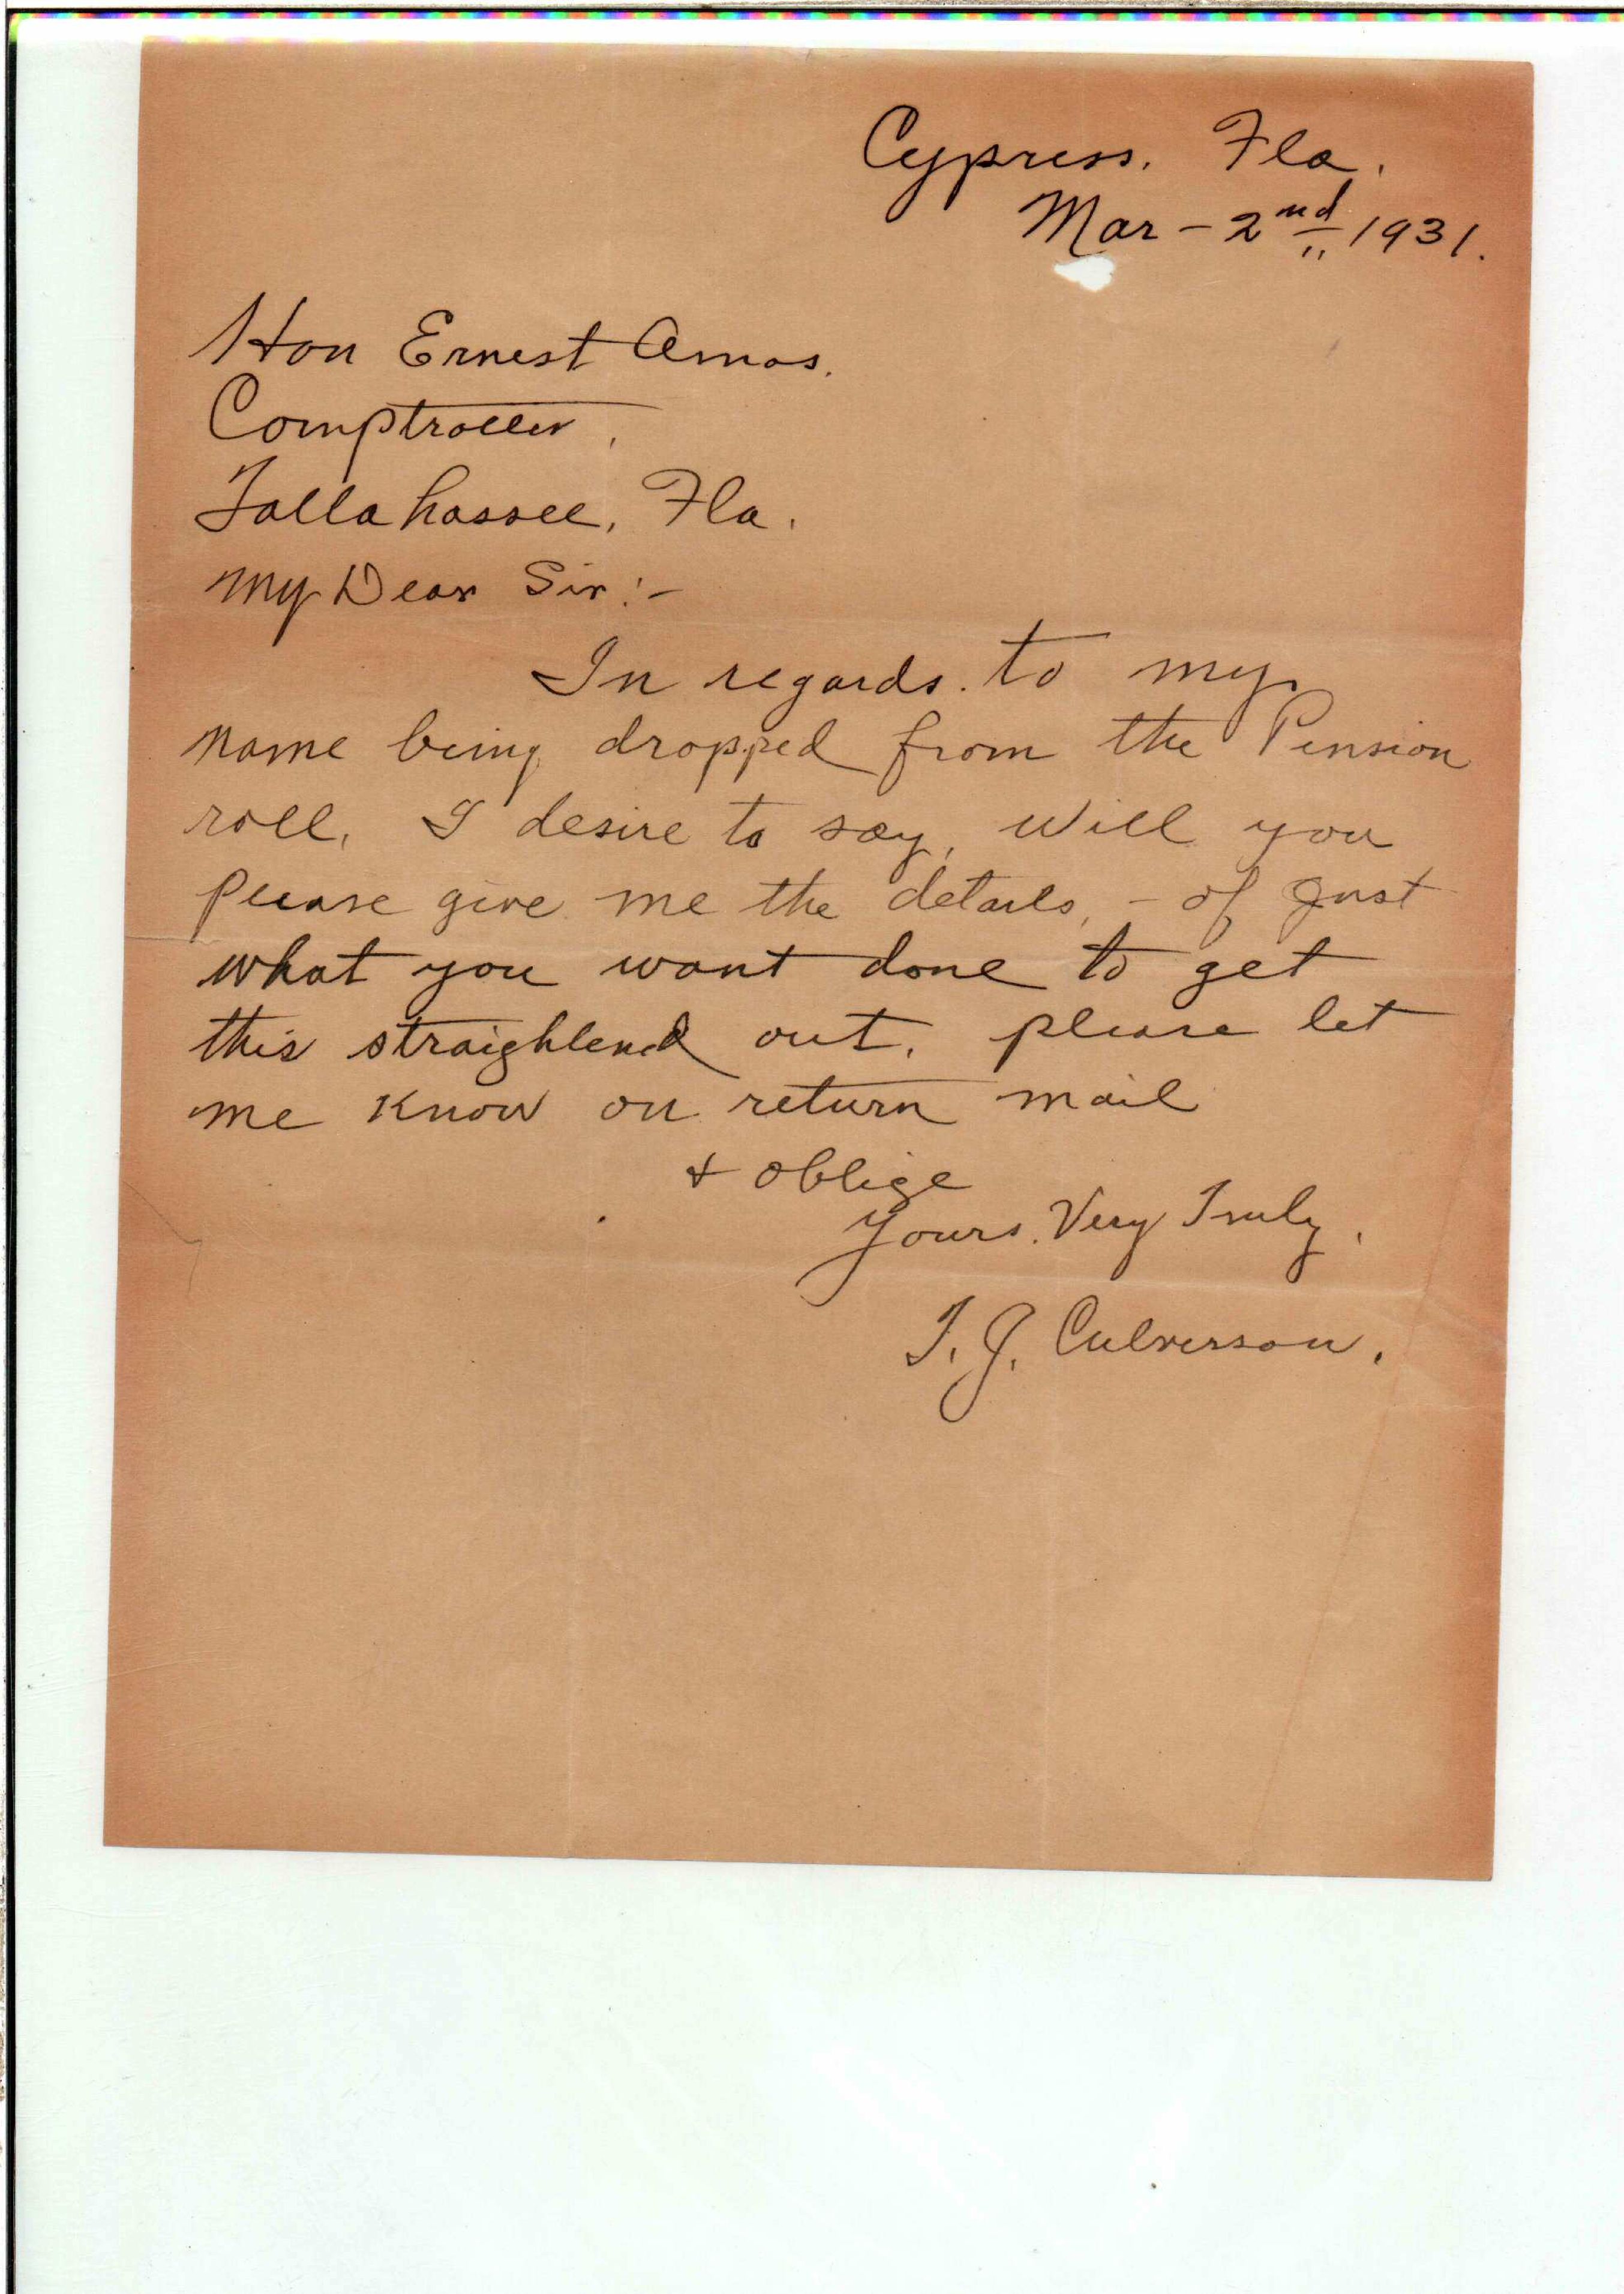 Cypress. Fla.
Mar - 2nd 1931.
Hon Ernest Amos.
Comptroller.
Tallahassee, Fla.
My Dear Sir:-
In regards. to my
name being dropped from the Pension
roll, I desire to say, will you
please give me the details, - of Just
what you want done to get
this straightened out. please let
me know on return mail
+ oblige
Yours. Very Truly.
T. J. Culverson.